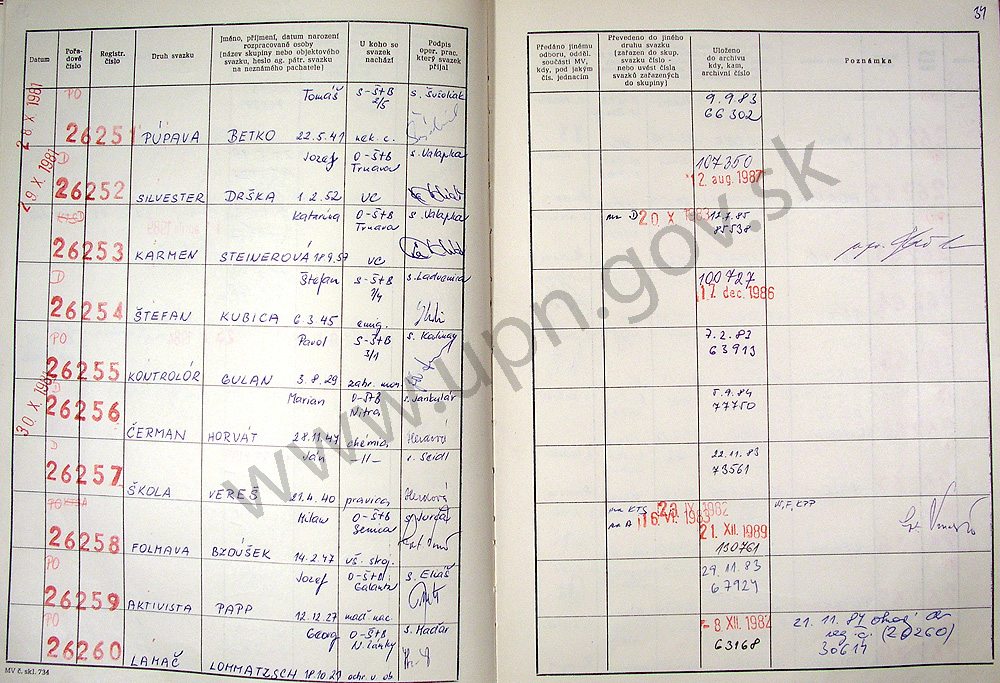 31
Datum
Pořadové číslo
Registr. číslo
Druh svazku
Jméno, příjmení, datum narození rozpracované osoby (název skupiny nebo objektového svazku, heslo ag. pátr. svazku na neznámého pachatele)
U koho se svazek nachází
Podpis oper. prac. který svazek přijal
Předáno jinému odboru, odděl. součásti MV, kdy, pod jakým čís. jednacím
Převedeno do jiného druhu svazku (zařazen do skup. svazku číslo - nebo uvést čísla svazků zařazených do skupiny)
Uloženo do archivu kdy, kam, archivní číslo
Poznámka
28 X 1981
PO
Tomáš
S-ŠtB
2/5
26251
PÚPAVA
BETKO
22.5.41
nek. c.
9.9.83
66302
29 X. 1981
D
Jozef
O-ŠtB
Trnava
s. Valapka
26252
SILVESTER
DRŠKA
1 2.52
VC
107350
12. aug. 1987
Katarína
O-ŠtB
Trnava
s. Valapka
26253
KARMEN
STEINEROVÁ
18 9.57
VC
na D
20. X 1983
12.7.85
85538
D
Štefan
S-ŠtB
26254
ŠTEFAN
KUBICA
6 3.45
emig.
100727
17. dec. 1986
PO
Pavol
S-ŠtB
3/1
26255
KONTROLÓR
GULAN
3.8.29
7.2.83
63913
30 X. 1981
D
Marian
O-ŠtB
Nitra
s. Jankulár
26256
ČERMAN
HORVÁT
28.11.47
chémia
5.9.84
77750
D
Ján
-11-
s. Seidl
26257
ŠKOLA
VEREŠ
21.4.40
pravica
22.11.83
73561
Milan
O-ŠtB
Senica
26258
FOLMAVA
BZDÚŠEK
14.2.47
vš. skoj.
na KTS
IX. 1982
na A
16. VI. 1983
21. XII. 1989
130761
PO
Jozef
O-ŠtB
Galanta
s. Eliáš
26259
AKTIVISTA
PAPP
12.12.27
maď nac.
29.11.83
67924
PO
Georg
O-ŠtB
N. Zámky
s. Maďar
26260
LAMAČ
LOMMATZSCH
18.10.21
ochr. u. ob.
- 8. XII. 1982
63168
21. 11. 84
30614
MV č. skl. 734
www.upn.gov.sk